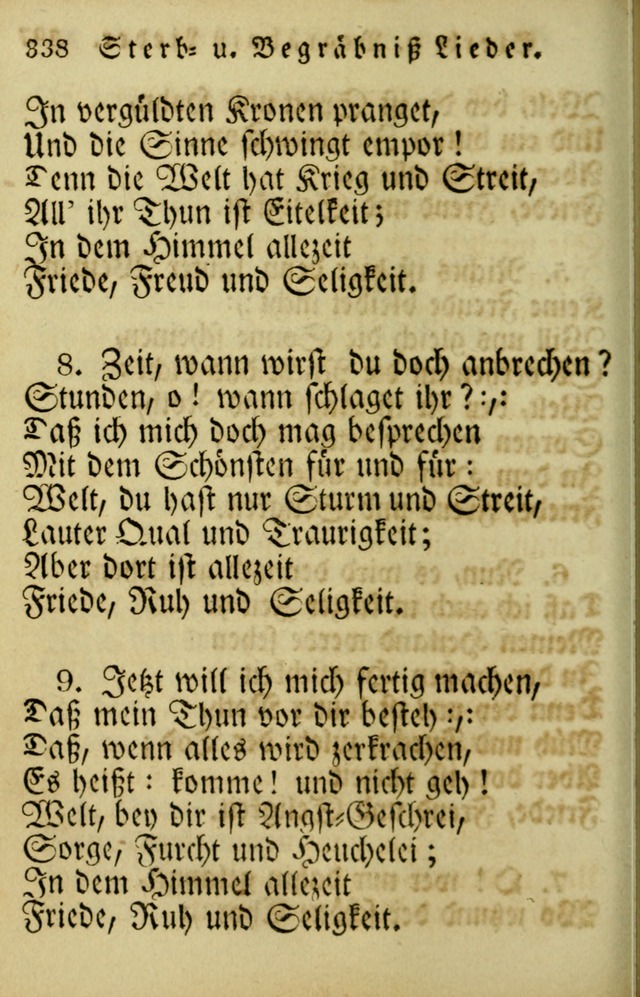 338 Sterb= u. Begräbniß Lieder.
In vergüldten Kronen pranget,
Und die Sinne schwingt empor!
Denn die Welt hat Krieg und Streit,
All' ihr Thun ist Eitelkeit;
In dem Himmel allezeit
Friede, Freud und Seligkeit.
8. Zeit, wann wirst du doch anbrechen?
Stunden, o! wann schlaget ihr? :,:
Daß ich mich doch mag besprechen
Mit dem Schönsten für und für:
Welt, du hast nur Sturm und Streit,
Lauter Qual und Traurigkeit;
Aber dort ist allezeit
Friede, Ruh und Seligkeit.
9. Jetzt will ich mich fertig machen,
Daß mein Thun vor dir besteh :,:
Daß, wenn alles wird zerkrachen,
Es heißt: komme! und nicht geh!
Welt, bey dir ist Angst=Geschrei,
Sorge, Furcht und Heuchelei;
In dem Himmel allezeit
Friede, Ruh und Seligkeit.